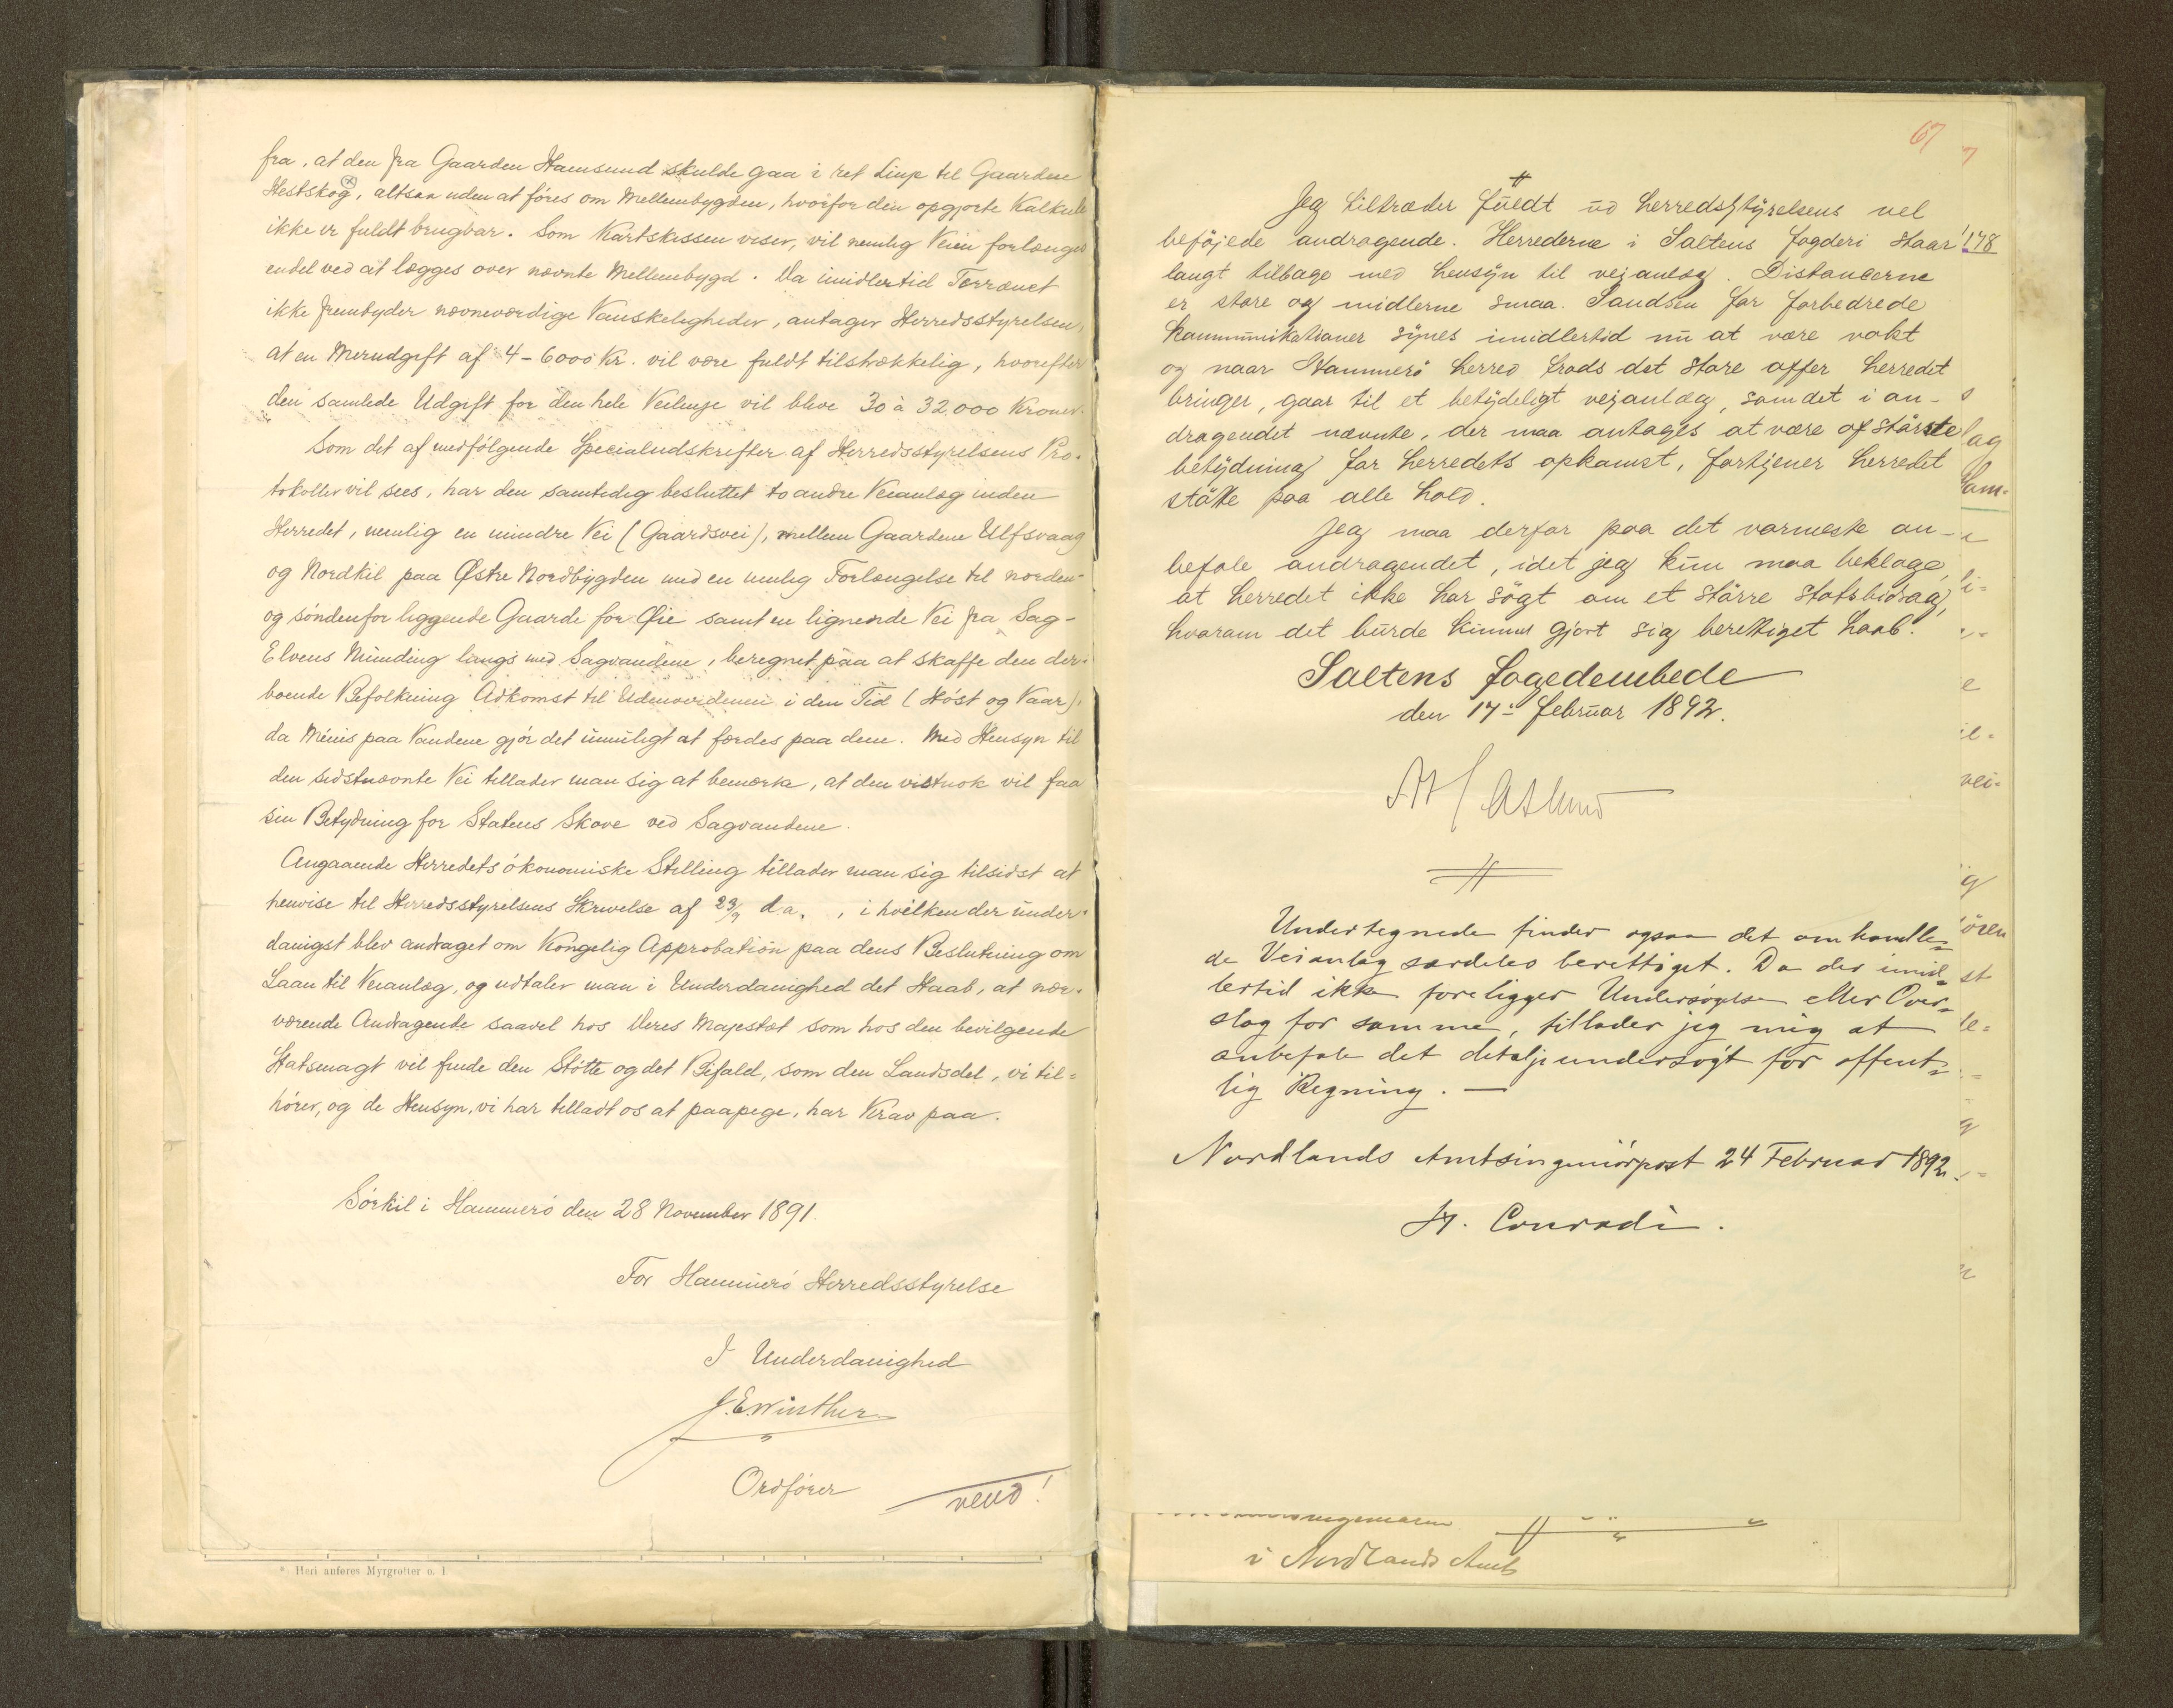 fra, at den fra Gaarden Hamsund skulde gaa i ret Linje til Gaarden
Hestskog, altsaa uden at föres om Mellembygden, hvorfor den opgjorte Kalkule
ikke er fuldt brugbar. Som Kartskissen viser, vil nemlig Veien forlænges
endel ved at lægges over nævnte Mellembygd. Da imidlertid Terrænet
ikke frembyder nævneværdige Vanskeligheder, antager Herredsstyrelsen,
at en Merudgift af 4-6000 Kr. vil være fuldt tilstrækkelig, hvorefter
den samlede Udgift for den hele Veilinje vil blive 30 à 32.000 Kroner.
Som det af medfölgende Specialudskrifter af Herredsstyrelsens Pro-
tokoller vil sees, har den samtidig besluttet to andre Veianlæg inden
Herredet, nemlig en mindre Vei (Gaardsvei), mellem Gaardene Ulfsvaag
og Nordkil paa Østre Nordbygden med en mulig Forlængelse til norden-
og söndenfor liggende Gaarde for Øie samt en lignende Vei fra Sag-
Elvens Munding langs med Sagvandene, beregnet paa at skaffe den der-
boende Befolkning Adkomst til Udenverdenen i den Tid (Höst og Vaar),
da Menis paa Vandene gjör det umuligt at færdes paa dem. Med Hensyn til
den sidstnævnte Vei tillader man sig at bemærke, at den vistnok vil faa
sin Betydning for Statens Skove ved Sagvandene.
Angaaende Herredets ökonomiske Stilling tillader man sig tilsidst at
henvise til Herredsstyrelsens Skrivelse af 23/9 d.a., i hvilken der under-
danigst blev andraget om Kongelig Approbation paa dens Beslutning om
Laan til Veianlæg, og udtaler man i Underdanighed det Haab, at nær-
værende Andragende saavel hos Deres Majestæt som hos den bevilgende
Statsmagt vil finde den Stötte og det Bifald, som den Landsdel, vi til=
hörer, og de Hensyn, vi har tilladt os at paapege, har Krav paa.
Sörkil i Hammerö den 28 November 1891.
For Hammerö Herredsstyrelse
I Underdanighed
J.E. Winther
Ordförer
vend!
* Heri anføres Myrgrøfter o. l
67
Jeg tiltræder fuldt ud herredsstyrelsens vel
beføjede andragende. Herrederne i Saltens fogderi staar
178
langt tilbage med hensyn til vejanlæg. Distancerne
er store og midlerne smaa. Sandsen for forbedrede
kommunikationer synes imidlertid nu at være vakt
og naar Hammerö herred trods det store offer herredet
bringer, gaar til et betydeligt vejanlæg, som det i an-
dragendet nævnte, der maa antages at være af störste
betydning for herredets opkomst, fortjener herredet
stötte paa alle hold.
Jeg maa derfor paa det varmeste an-
befale andragendet, idet jeg kun maa beklage,
at herredet ikke har sögt om et större statsbidrag,
hvorom det burde kunnet gjort sig berettiget haab.
Saltens fogedembede
den 17de februar 1892.
Undertegnede finder ogsaa det omhandle=
de Veianlæg særdeles berettiget. Da der imid=
lertid ikke foreligger Undersøgelse eller Over=
slag for samme, tillader jeg mig at
anbefale det detaljeundersøgt for offent=
lig Regning. —
Nordlands Amtsingeniörpost 24 Februar 1892.
H. Conradi.
i Nordlands Amt